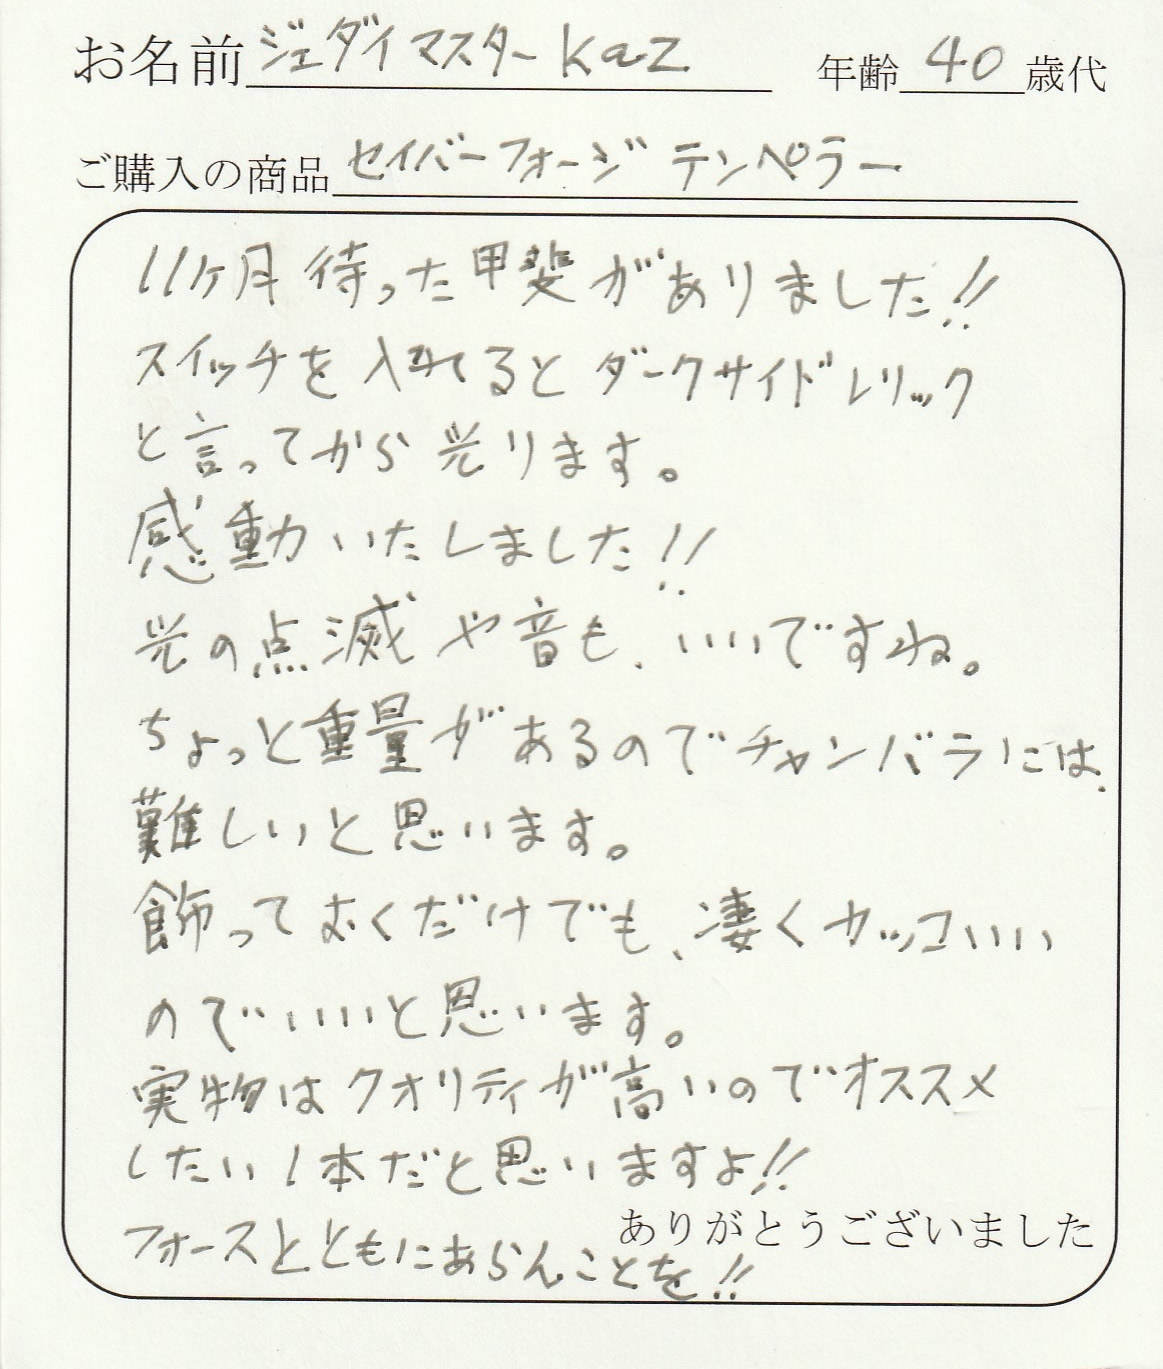 お名前 ジェダイマスターkaz 年齢 40 歳代
ご購入の商品 セイバーフォージ テンペラー
11ヶ月待った甲斐がありました!!
スイッチを入れるとダークサイドレリック
と言ってから光ります。
感動いたしました!!
光の点滅や音も、いいですね。
ちょっと重量があるのでチャンバラには、
難しいと思います。
飾っておくだけでも、凄くカッコいい
のでいいと思います。
実物はクオリティが高いのでオススメ
したい1本だと思いますよ!!
ありがとうございました
フォースとともにあらんことを!!